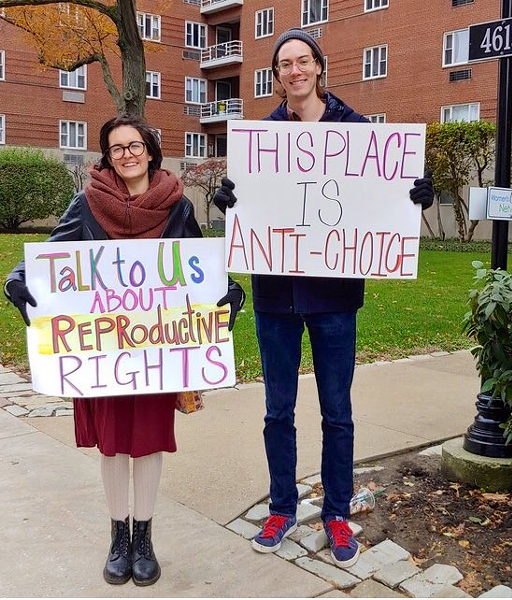 TaLK to Us
ABOUT
REPRoductivE
RIGHTS
THIS PLACE
IS
ANTI-CHOICE
461